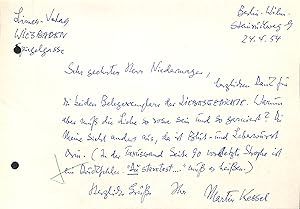 Limes-Verlag
WIESBADEN
Spiegelgasse
Berlin-Wilm.
24.4.54
Sehr geehrter Herr Niedermayer,
herzlichen Dank für
die beiden Belegexemplare der LIEBESGEDICHTE. Warum
aber muß die Liebe so rosa sein und so garniert? Die
Meine sieht anders aus, da ist Blut- und Lebenswut
drin. (In der Seite 90 vorletzte Strophe ist
ein Druckfehler. "Du störtest..." muß es heißen.)
Herzliche Grüße Ihr Martin Kessel